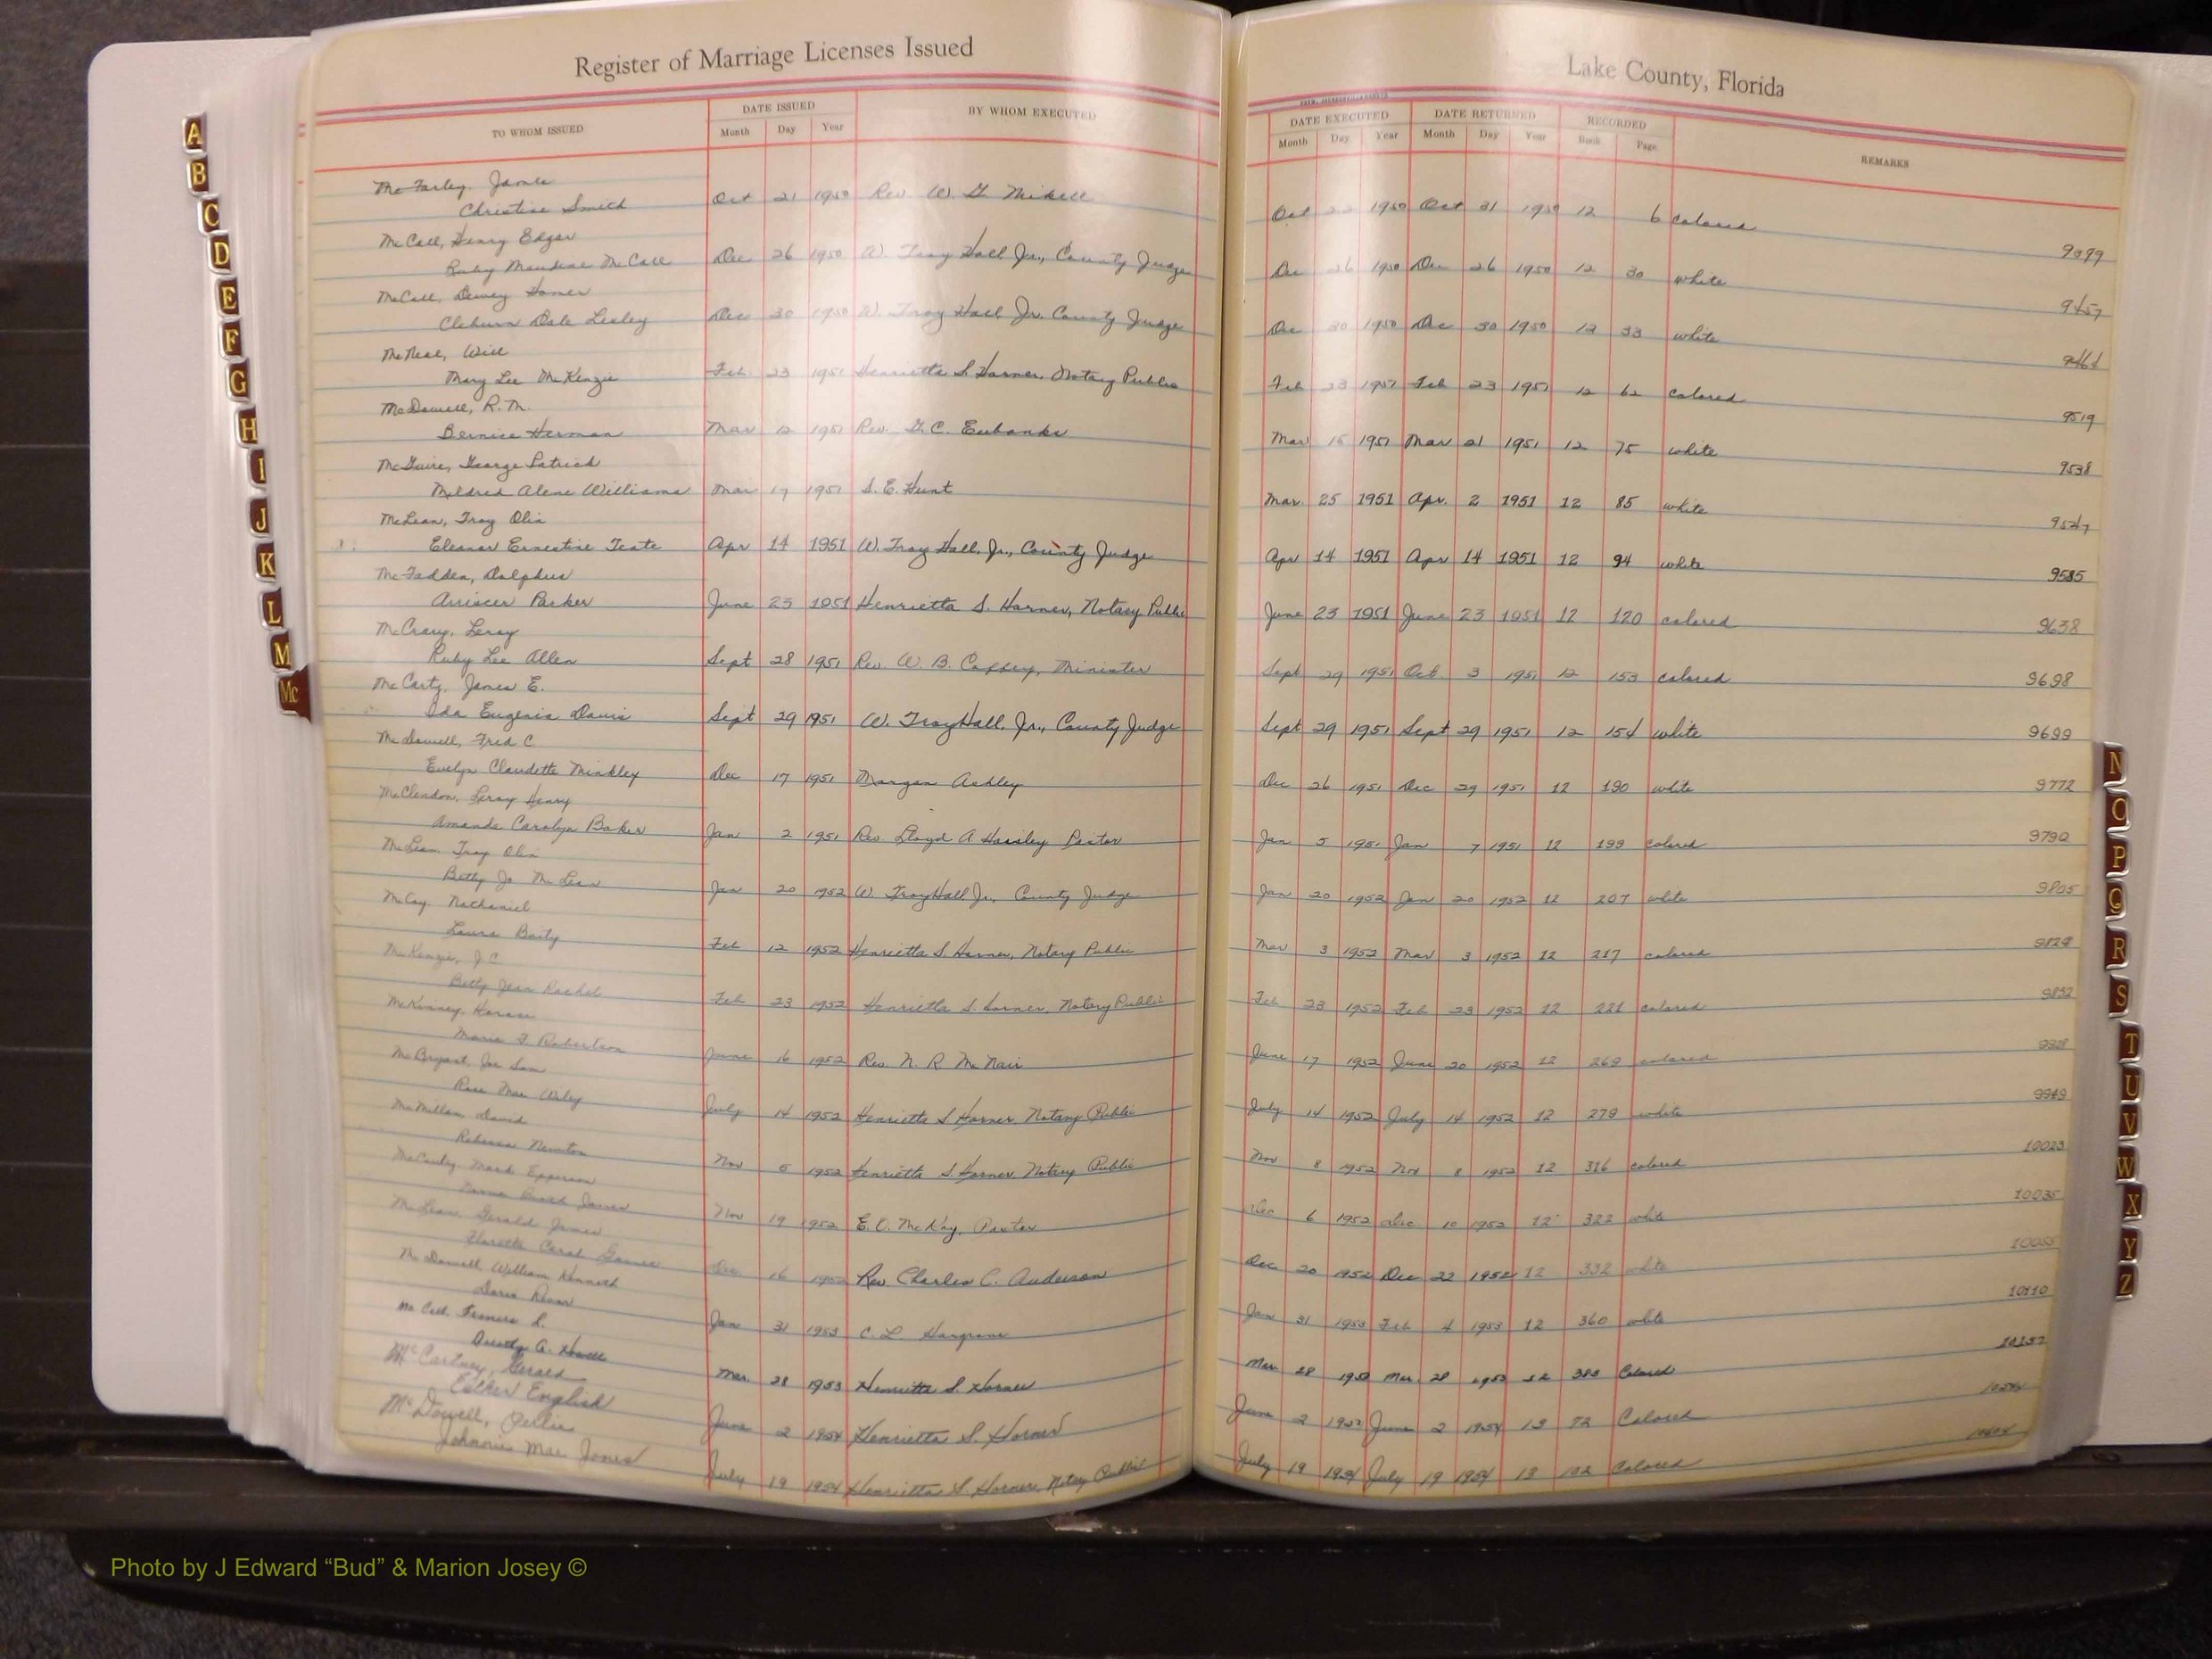 Register of Marriage Licenses Issued
Lake County, Florida
TO WHOM ISSUED
DATE ISSUED
Month Day Year
BY WHOM EXECUTED
DATE EXECUTED
Month Day Year
DATE RETURNED
Month Day Year
RECORDED
Book Page
REMARKS
McFarley,
Christine Smith Oct 21 1950 Rev. W. G. Mikell Oct 1950 Oct 31 1950 12 6 colored
McCall, Henry Edgar
Ruby Maudene McCall Dec 26 1950 W. Troy Hall Jr., County Judge Dec 26 1950 Dec 26 1950 12 30 white 9457
McCall, Dewey Homer
Cleburn Dale Lesley Dec 30 1950 W. Troy Hall, Jr. County Judge Dec 30 1950 Dec 30 1950 12 33 white
McNeal, Will
Mary Lee McKenzie Feb 23 1951 Henrietta S. Horner, Notary Public Feb 23 1951 Feb 23 1951 12 62 colored 9519
McDowell, R. M.
Bernice Herman Mar 12 1951 Rev. G. C. Eubanks Mar 15 1951 Mar 21 1951 12 75 white 9538
McGuire, George Patrick
Mildred Alene Williams Mar 17 1951 S. E. Hunt Mar. 25 1951 Apr. 2 1951 12 85 white 9547
McLean, Troy Olin
Eleanor Ernestine Teate Apr 14 1951 W. Troy Hall, Jr., County Judge Apr 14 1951 Apr 14 1951 12 94 white 9585
McFadden, Dolphus
Parker June 23 1951 Henrietta S. Horner, Notary Public June 23 1951 June 23 1951 12 120 colored 9638
McCrary, Leroy
Ruby Lee Allen Sept 28 1951 Rev. W. B. Minister Sept 29 1951 Oct. 3 1951 12 153 colored 9698
McCarty, James E.
Ida Eugenia Davis Sept 29 1951 W. Troy Hall, Jr., County Judge Sept 29 1951 Sept 29 1951 12 154 white 9699
McDowell, Fred C
Evelyn Claudette Minkley Dec 17 1951 Morgan Ashley Dec 26 1951 Dec 29 1951 12 190 white 9772
McClendon, Leroy Henry
Amanda Carolyn Baker Jan 2 1951 Rev Lloyd A. Pastor Jan 5 1951 Jan 7 1951 12 199 colored 9790
McLean Troy Olin
Betty Jo McLean Jan 20 1952 W Troy Hall Jr., County Judge Jan 20 1952 Jan 20 1952 12 207 white 9805
McCoy, Nathaniel
Laura Baity Feb 12 1952 Henrietta S. Horner, Notary Public Mar 3 1952 Mar 3 1952 12 217 colored
McKenzie, J C
Betty Jean Rachel Feb 23 1952 Henrietta S. Horner, Notary Public Feb 23 1952 Feb 23 1952 12 221 colored
McKinney, Horace
Marie F. Robertson June 16 1952 Rev. N. R McNair June 17 1952 June 20 1952 12 269 colored
McBryant, Joe Sam
Rosa Mae Wiley July 14 1952 Henrietta S Horner, Notary Public July 14 1952 July 14 1952 12 279 white 9949
McMillan, David
Rebecca Newton Nov 1952 Henrietta S. Horner, Notary Public Nov 8 1952 Nov 8 1952 12 316 colored 10023
McCauley, Mark Epperson
James Nov 19 1952 E. O. McKay, Pastor Dec 6 1952 Dec 10 1952 12 322 white 10035
McLean Gerald James
Carol Dec 16 1952 Rev Charles C. Anderson Dec 20 1952 Dec 22 1952 12 332 white 10055
McDowell William Kenneth
Doris Jan 31 1953 C. L Hargrove Jan 31 1953 Feb 4 1953 12 360 white 10110
McCall, Francis L.
Dorothy A. Howell Mar. 28 1953 Henrietta S. Horner Mar 28 1953 Mar. 28 1953 12 383 Colored
McCartney, Gerald
Esther English June 2 1954 Henrietta S. Horner June 2 June 2 1954 13 72 Colored
McDowell, Ollie
Johnnie Mae Jones July 19 1954 Henrietta S. Horner, Notary Public July 19 1954 July 19 1954 13 102 Colored
A
B
C
D
E
F
G
H
I
J
K
L
M
Mc
N
O
P
Q
R
S
T
U
V
W
X
Y
Z
Photo by J Edward “Bud” & Marion Josey ©